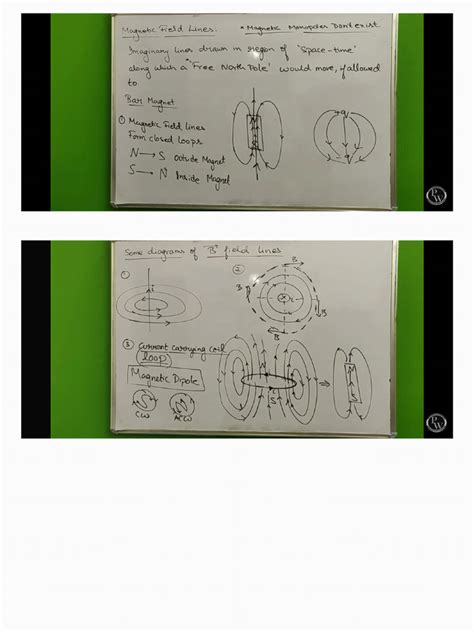 Magnetic Field Lines: * Magnetic Monopoles Don't exist
Imaginary lines drawn in region of 'Space-time'
along which a 'Free North Pole' would move, if allowed
to
Bar Magnet
① Magnetic Field lines
Form closed loops
N → S Outside Magnet
S → N Inside Magnet
N
S
PW
Some diagrams of "B" field lines
①
i
②
B
B
B
B
③ Current carrying coil
loop
Magnetic Dipole
S
N
CW
ACW
N
S
i
⇒
N
S
PW